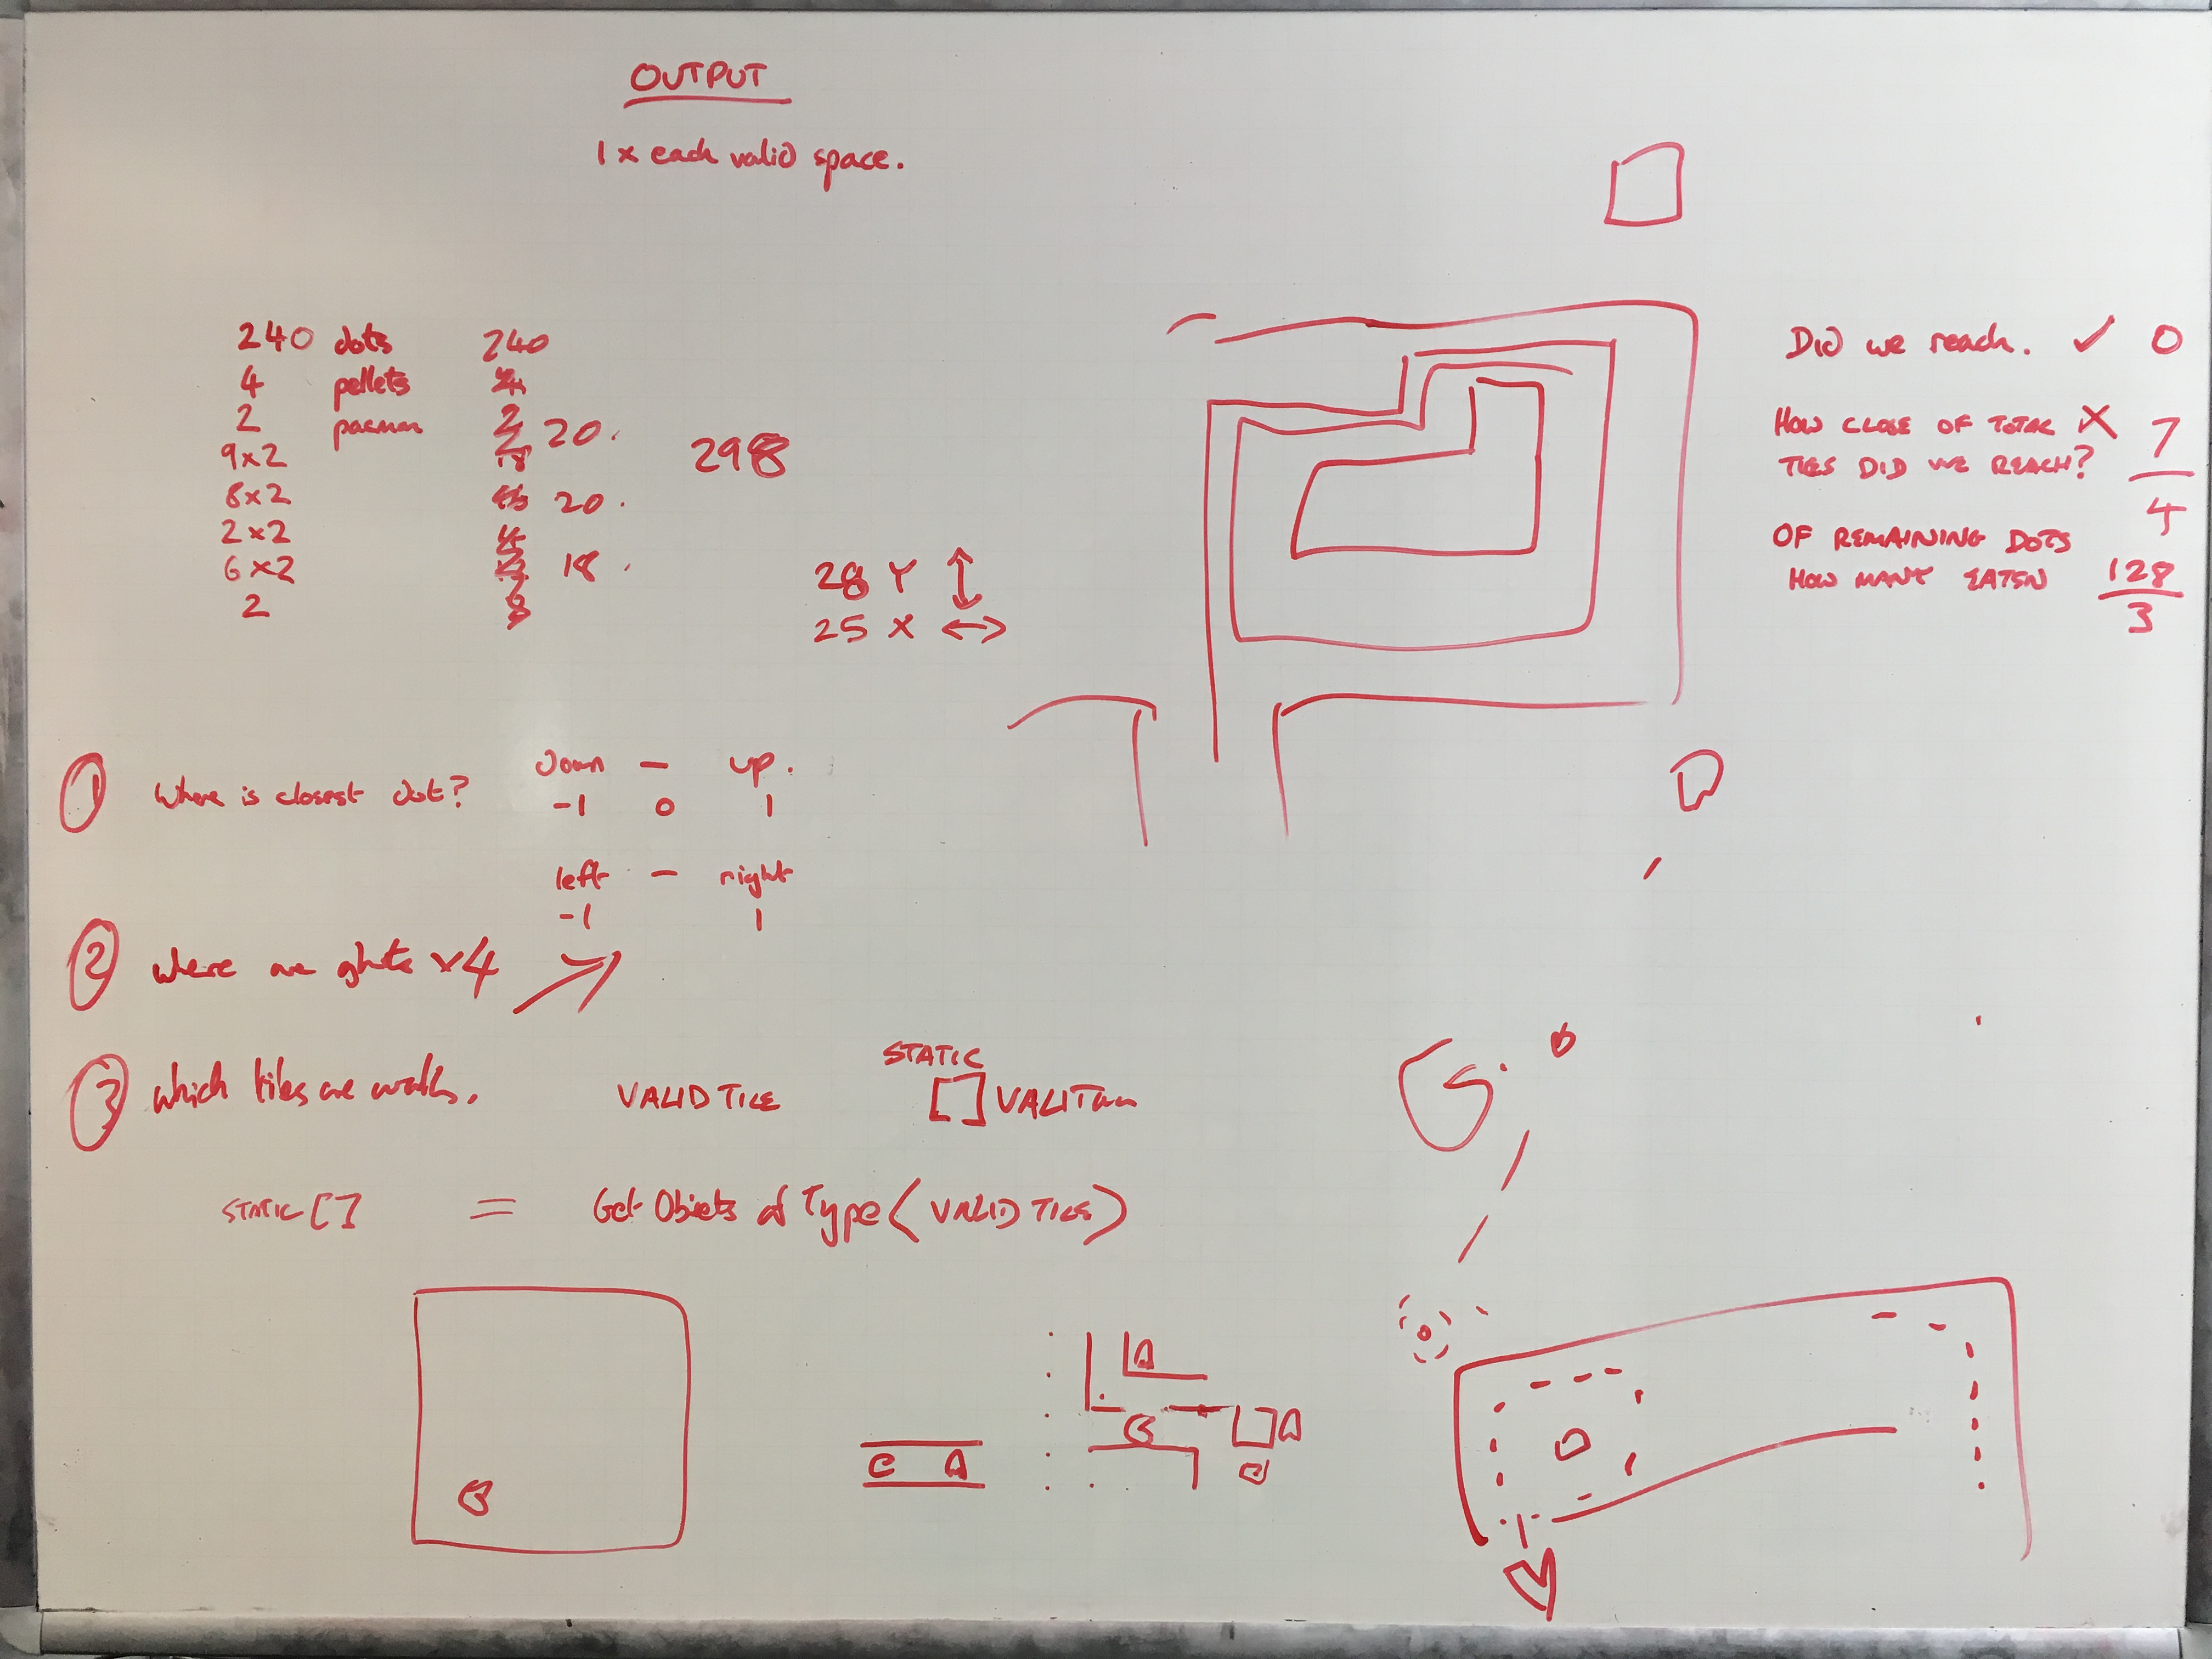 OUTPUT
1 x each valid space.
240 dots 240
4 pellets
2 pacman 2 20.
9x2 18
298
8x2 20.
2x2 4
6x2 18.
2
28 Y
25 X
Did we reach. ✓ 0
HOW CLOSE OF TOTAL X 7
TILES DID WE REACH?
4
OF REMAINING DOTS
HOW MANY EATEN 128
3
1 Where is closest dot?
down – up.
-1 0 1
left – right
-1 1
2 where are ghosts x4
3 which tiles are walls.
VALID TILE
STATIC
[]
STATIC [] = Get Objects of Type (VALID TILE)